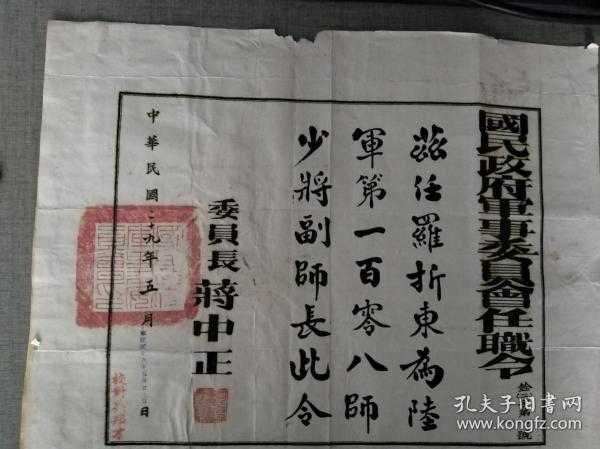 國民政府軍事委員會任職令
茲任羅折東為陸
軍第一百零八師
少將副師長此令
委員長蔣中正
中華民國二十九年五月
日
孔夫子旧书网